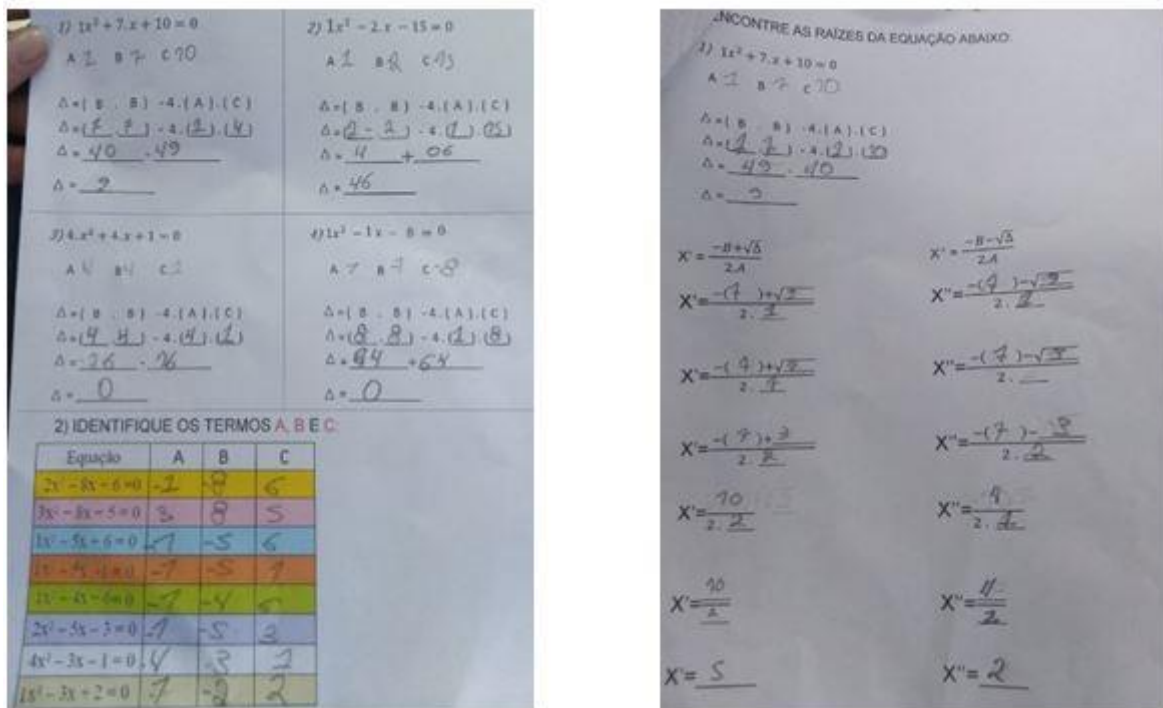 1) 1x² + 7.x + 10 = 0
A 1 B 7 C 10
Δ=( B . B ) -4.(A).(C)
Δ=(7 . 7) - 4.(1).(4)
Δ= 40 - 49
Δ= 9
2) 1x² - 2.x - 15 = 0
A 1 B 2 C 15
Δ=( B . B ) -4.(A).(C)
Δ=(2 - 2) - 4.(1).(15)
Δ= 4 + 06
Δ= 46
3) 4.x² + 4.x + 1 = 0
A 4 B 4 C 1
Δ=( B . B ) -4.(A).(C)
Δ=(4 . 4) - 4.(4).(1)
Δ= 16 - 16
Δ= 0
4) 1x² - 1x - 8 = 0
A 7 B 7 C -8
Δ=( B . B ) -4.(A).(C)
Δ=(8 . 8) - 4.(1).(8)
Δ= 64 + 64
Δ= 0
2) IDENTIFIQUE OS TERMOS A, B E C:
Equação A B C
2x² - 8x - 6 = 0 -2 -8 6
3x² - 8x - 5 = 0 3 8 5
1x² - 5x + 6 = 0 -7 -5 6
-7 -5 7
-7 -4 5
2x² - 5x - 3 = 0 -7 -5 3
4x² - 3x - 1 = 0 -4 -3 1
1x² - 3x + 2 = 0 -7 -2 2
ENCONTRE AS RAÍZES DA EQUAÇÃO ABAIXO:
1) 1x² + 7.x + 10 = 0
A 1 B 7 C 10
Δ=( B . B ) -4.(A).(C)
Δ=(7 . 7) - 4.(1).(10)
Δ= 49 - 40
Δ= 9
X' = -B+√Δ / 2.A
X'= -(7 )+√9 / 2. 1
X'= -( 7 )+√9 / 2. 1
X'= -( 7 )+ 3 / 2. 2
X'= 10 / 2. 2
X'= 10 / 2
X'= 5
X' = -B-√Δ / 2.A
X''= -(7 )-√9 / 2. 1
X''= -( 7 )-√9 / 2. __
X''= -(7 )- 3 / 2. 2
X''= 4 / 2. 1
X''= 4 / 2
X''= 2